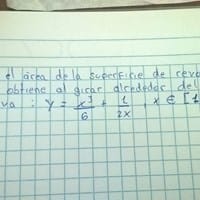 el área de la superficie de revo
obtiene al girar alrededor del
va : y = x³/6 + 1/2x , x ∈ [1